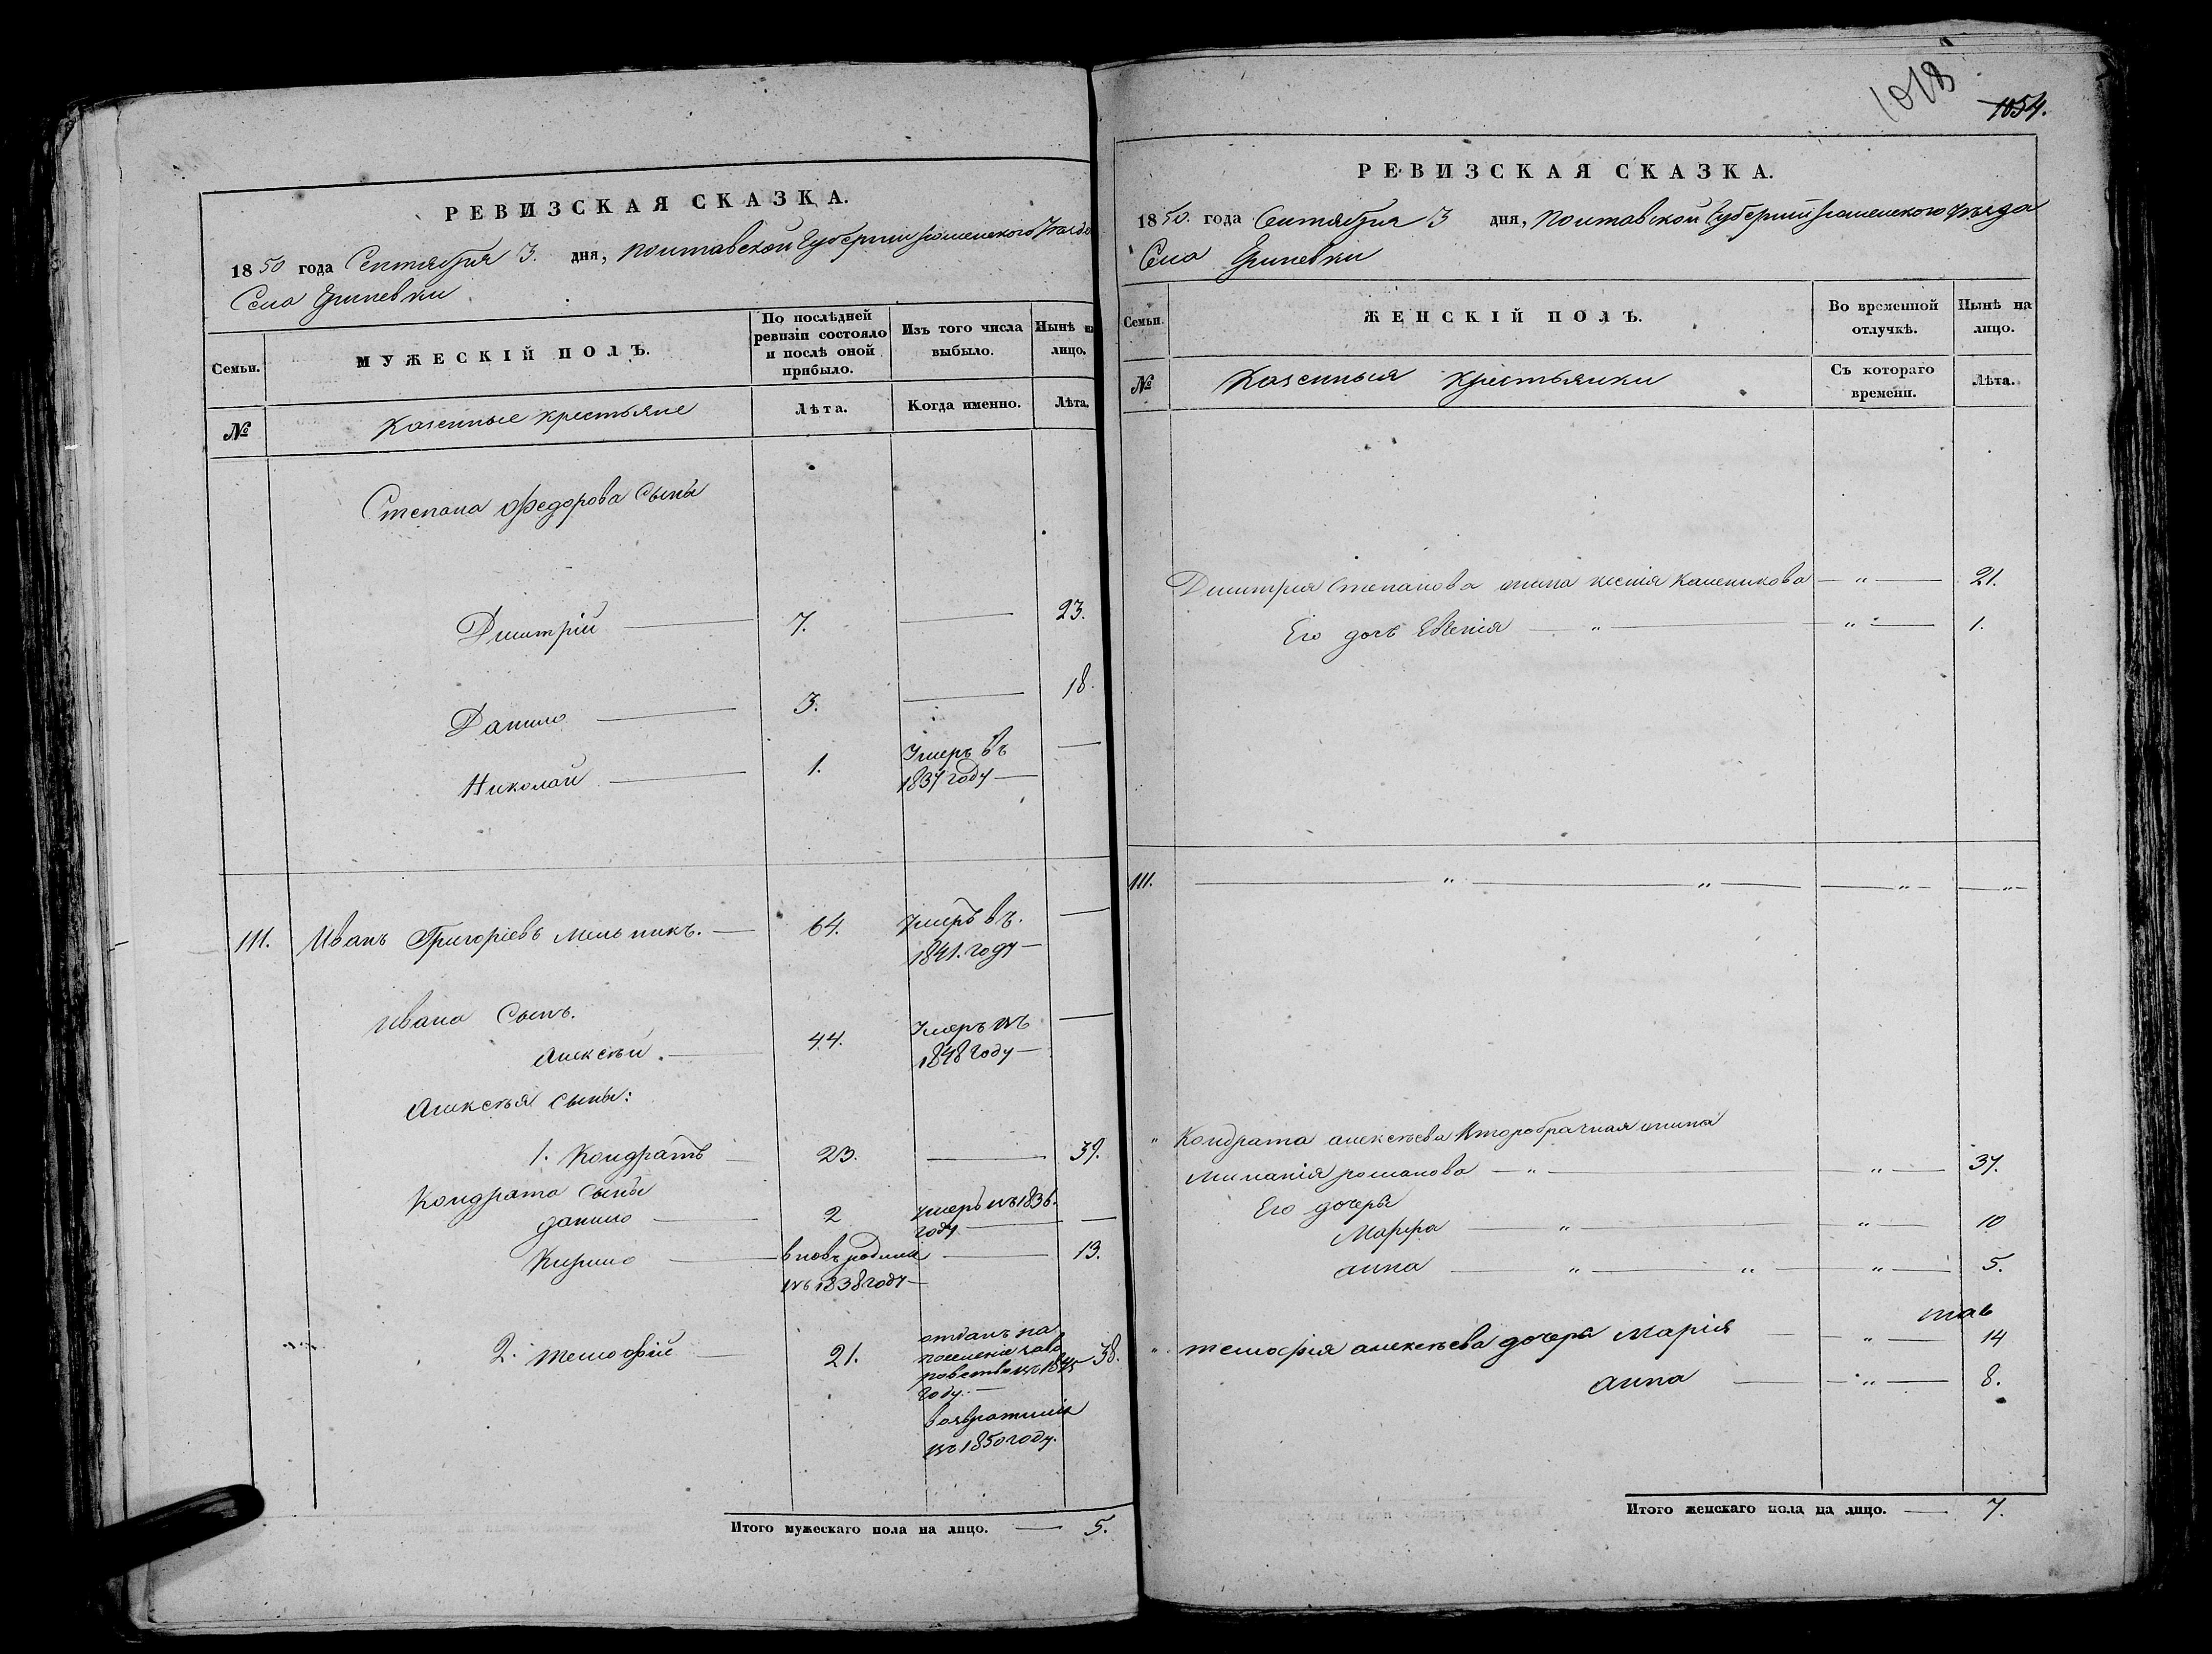 РЕВИЗСКАЯ СКАЗКА.
1850 года Сентября 3. дня, Полтавской Губернии роменского Уезда
Села
Семьи.
МУЖЕСКІЙ ПОЛЪ.
По послѣдней ревизіи состояло и послѣ оной прибыло.
Изъ того числа выбыло.
Нынѣ на лицо.
№
Казенные крестьяне
Лѣта.
Когда именно.
Лѣта.
Степана Федорова Сыны
Димитрій 7. 23.
Данило 3. 18.
Николай 1. Умеръ въ
1837 году
111. Иванъ Григоріевъ Мельникъ. 64. Умеръ въ.
1841. году
Ивана Сынъ.
Алексѣй. 44. Умеръ въ
1848 году
Алексѣя Сыны:
1. Кондратъ 23. 39.
Кондрата Сыны
Данило 2 Умеръ въ 1836.
году
Кирило вновь родился 13.
въ 1838 году
2. Тимофій 21. отданъ на 38.
поселеніе за во
ровство въ 1845
году.
возвратился
въ 1850 году.
Итого мужескаго пола на лицо. 5.
1018
1054.
РЕВИЗСКАЯ СКАЗКА.
1850. года Сентября 3 дня, Полтавской Губерніи роменского уезда
Села
Семьи.
ЖЕНСКІЙ ПОЛЪ.
Во временной отлучкѣ.
Нынѣ на лицо.
№
Казенныя Крестьянки
Съ котораго времени.
Лѣта.
Димитрия Степанова жина ксенія 〃 21.
Его дочь Евгенія 〃 〃 1.
111. 〃 〃 〃 〃
〃 Кондрата алексѣева Второбрачная жина
Миланія романова 〃 〃 37.
Его дочери
Марфа 〃 〃 10
анна 〃 〃 〃 5.
〃 тимофія алексѣева дочери Марія 〃 14
анна 〃 8.
Итого женскаго пола на лицо. 7.